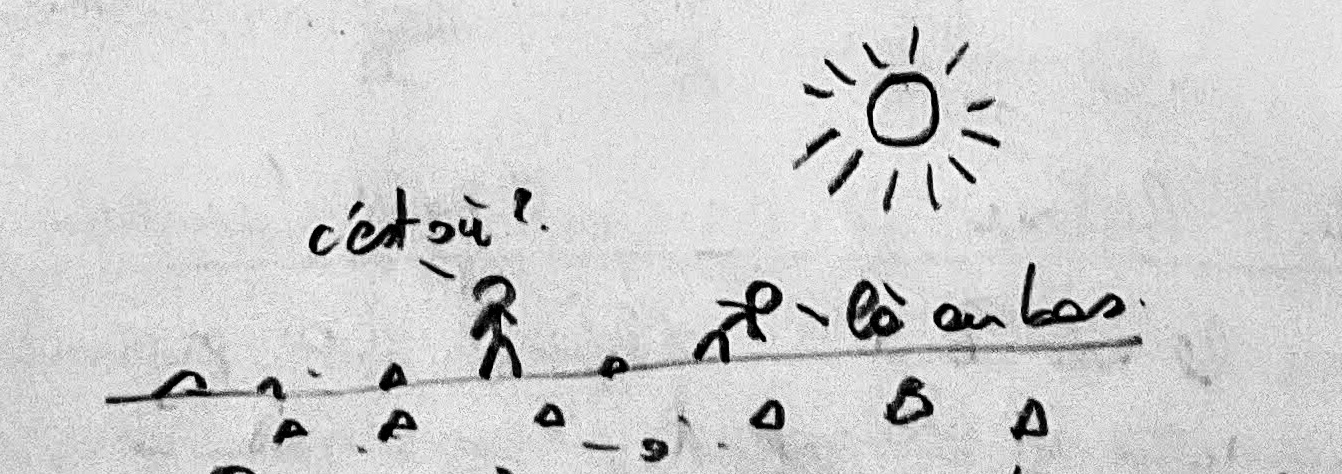 c'est où ?
là au bas.